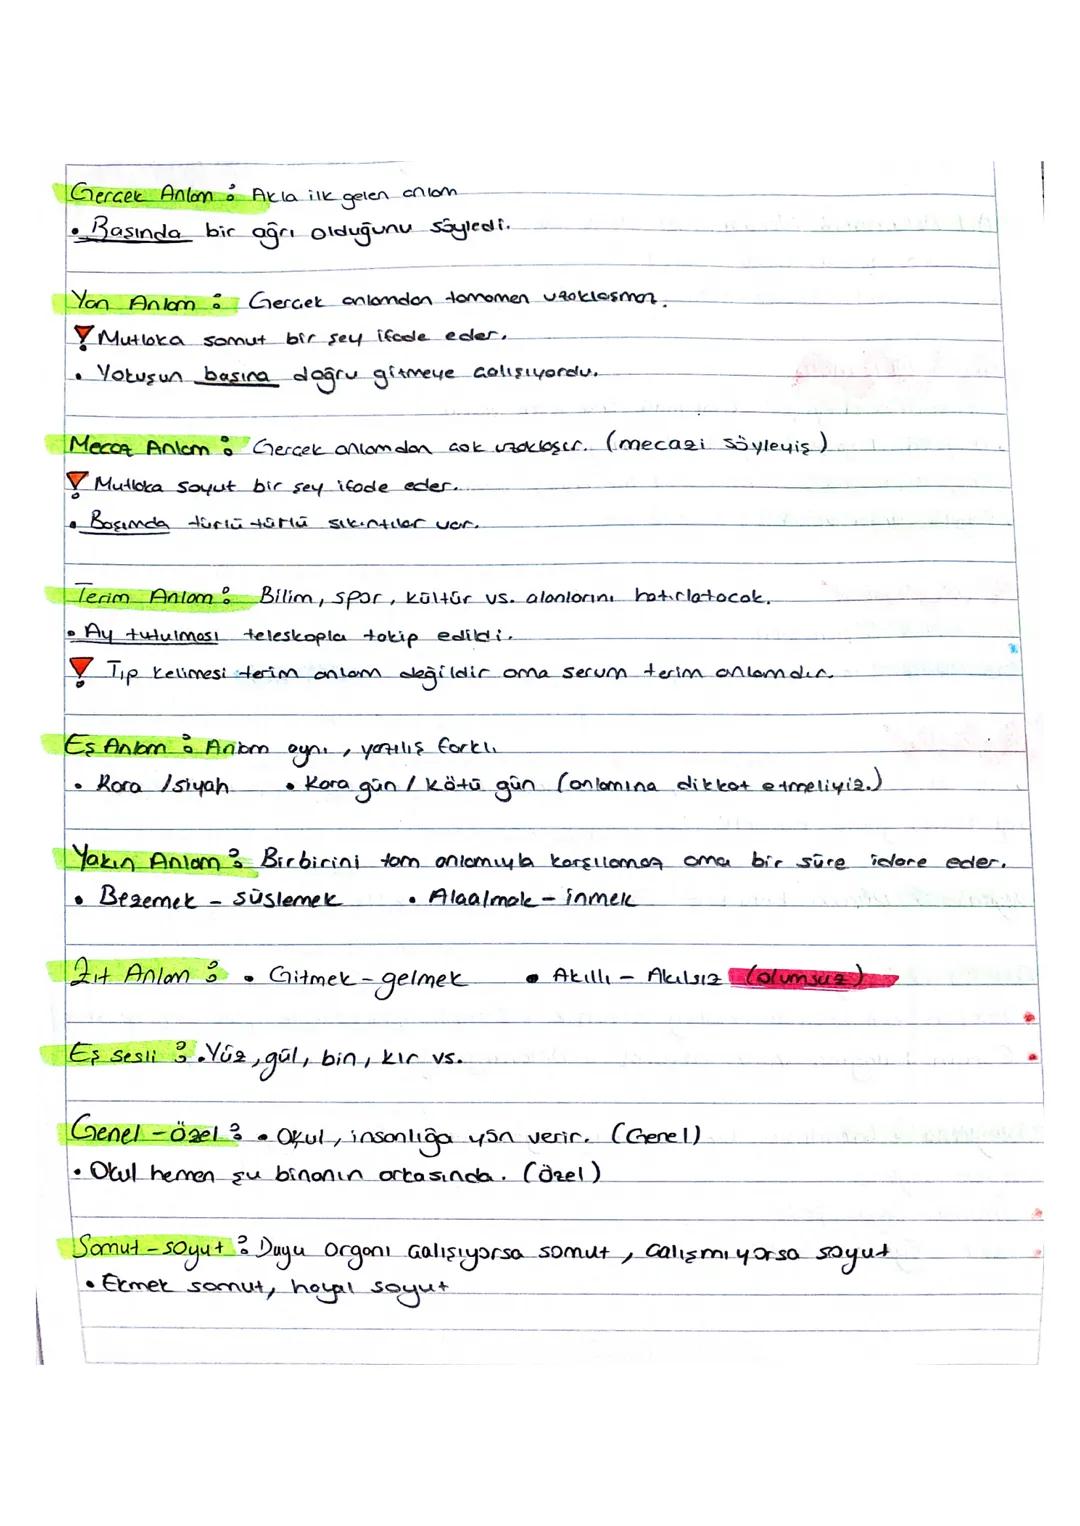 Gerçek Anlam : Akla ilk gelen anlam
• Başında bir ağrı olduğunu söyledi.
Yan Anlam : Gerçek anlamdan tamamen uzaklaşmaz.
Mutlaka somut bir şey ifade eder.
• Yokuşun başına doğru gitmeye çalışıyordu.
Mecaz Anlam : Gerçek anlamdan çok uzaklaşır. (mecazi söyleyiş)
Mutlaka soyut bir şey ifade eder.
• Başımda türlü türlü sıkıntılar var.
Terim Anlam : Bilim, spor, kültür vs. alanlarını hatırlatacak.
• Ay tutulması teleskopla takip edildi.
Tıp kelimesi terim anlam değildir ama serum terim anlamdır.
Eş Anlam : Anlam aynı, yazılış farklı
• Kara / siyah • Kara gün / kötü gün (anlamına dikkat etmeliyiz.)
Yakın Anlam : Birbirini tam anlamıyla karşılamaz ama bir süre idare eder.
• Bezemek - süslemek • Alçalmak - inmek
Zıt Anlam : • Gitmek - gelmek • Akıllı - Akılsız (olumsuz)
Eş sesli : • Yüz, gül, bin, kır vs.
Genel - özel : • Okul, insanlığa yön verir. (Genel)
• Okul hemen şu binanın arkasında. (özel)
Somut - soyut : Duyu organı çalışıyorsa somut, çalışmıyorsa soyut
• Ekmek somut, hayal soyut